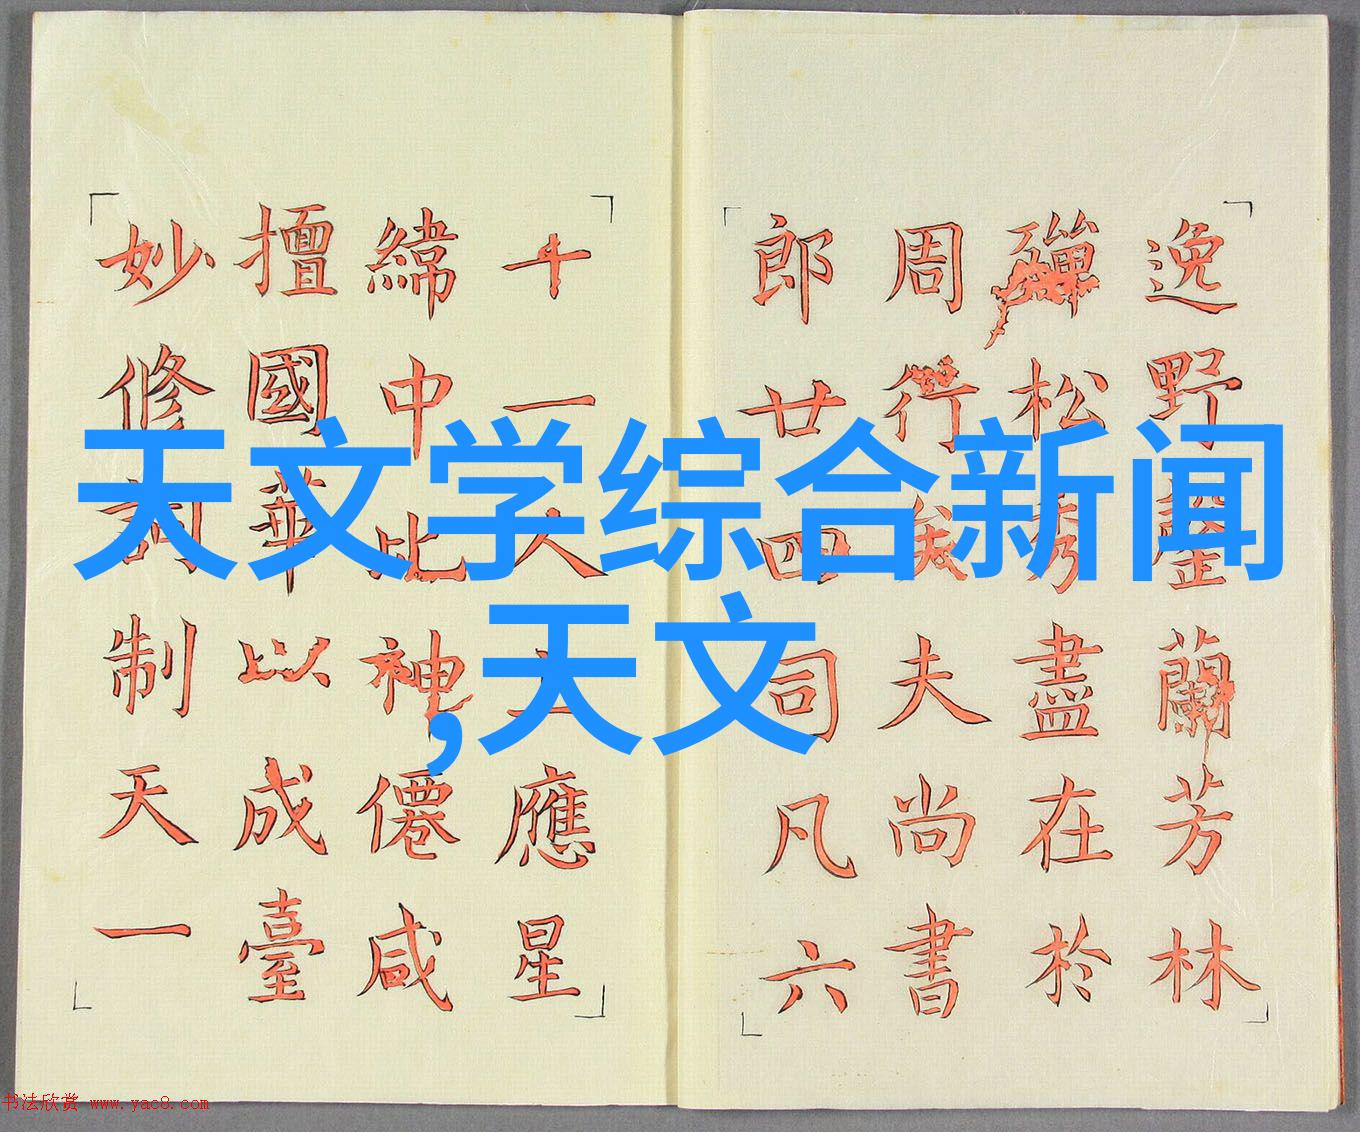 天文学综合新闻
,天文
逸野罄蘭芳林
殫松秀盡在於
周行矣夫尚書
郎廿四司凡六
十一人上應星
緯中比神僊咸
擅國華以成臺
妙修詞制天一
书法欣赏 www.yac8.com